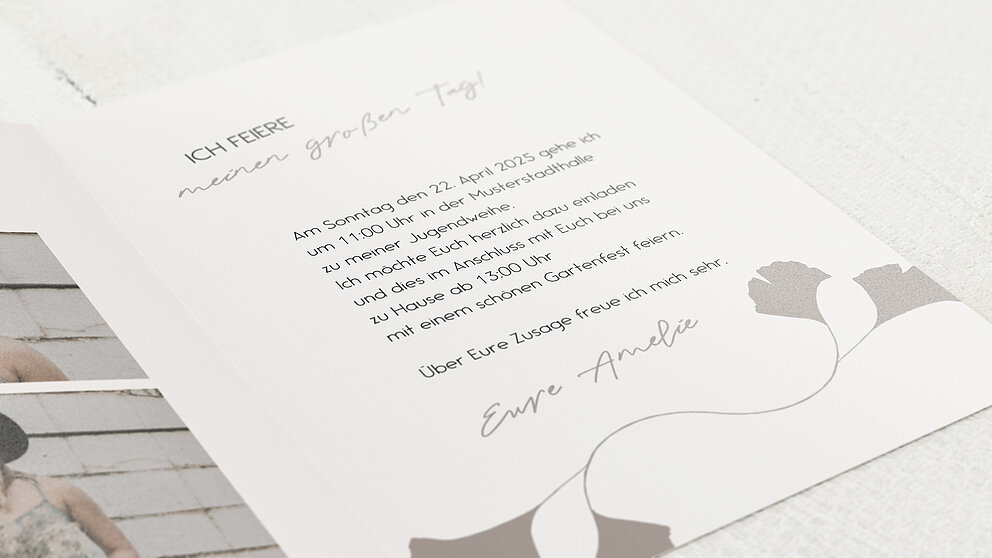 ICH FEIERE
meinen großen Tag!
Am Sonntag den 22. April 2025 gehe ich
um 11:00 Uhr in der Musterstadthalle
zu meiner Jugendweihe.
Ich möchte Euch herzlich dazu einladen
und dies im Anschluss mit Euch bei uns
zu Hause ab 13:00 Uhr
mit einem schönen Gartenfest feiern.
Über Eure Zusage freue ich mich sehr.
Eure Amelie